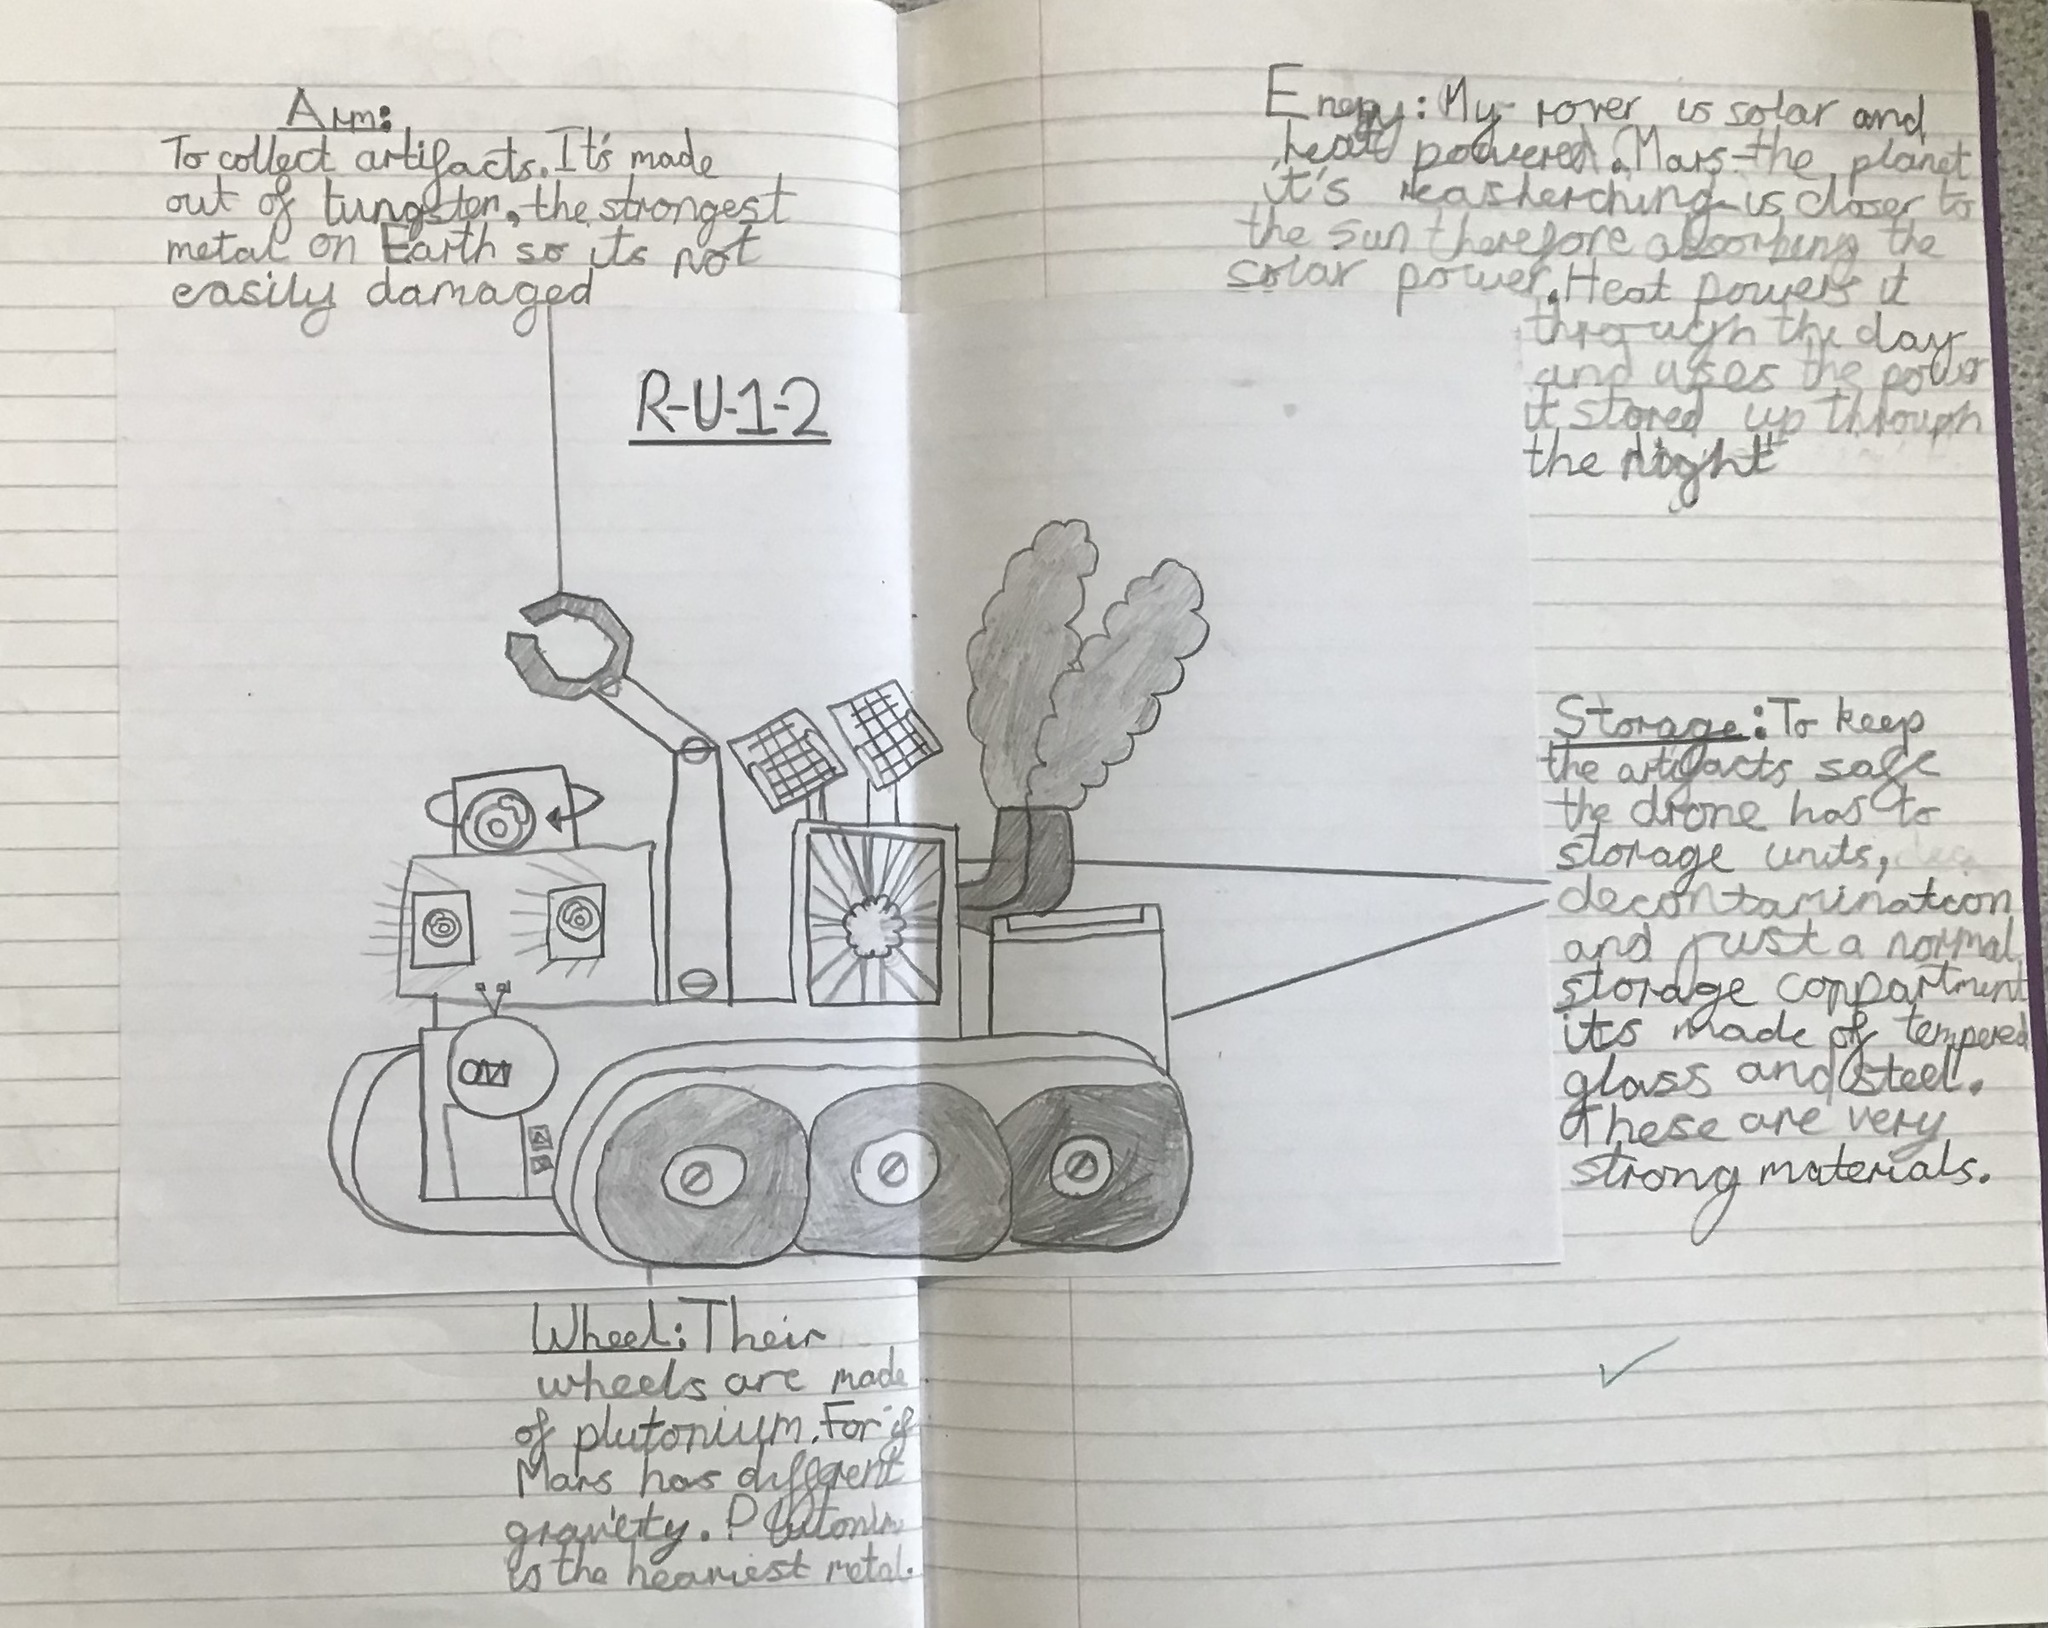 Arm:
To collect artifacts. It's made
out of tungsten, the strongest
metal on Earth so its not
easily damaged
R-U-1-2
Energy: My rover is solar and
heat powered. Mars-the planet
it's reasherching-is closer to
the sun therefore absorbing the
solar power. Heat powers it
through the day
and uses the power
it stored up through
the night
Storage: To keep
the artifacts safe
the drone has to
storage units,
decontamination
and just a normal
storage coppartment
its made of tempered
glass and steel.
These are very
strong materials.
Wheel: Their
wheels are made
of plutonium. For if
Mars has different
graviety.
is the heaviest metal.